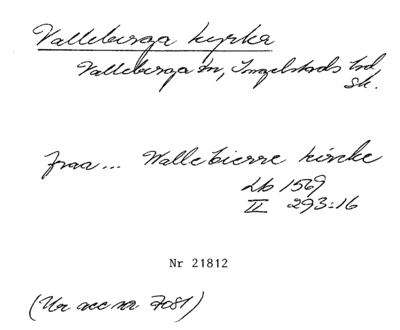 Valleberga kyrka
Valleberga sn, Ingelstads hd
Sk.
fraa... Wallebierre kircke
Lb 1569
II 293:16
Nr 21812
(Ur acc nr 7081)